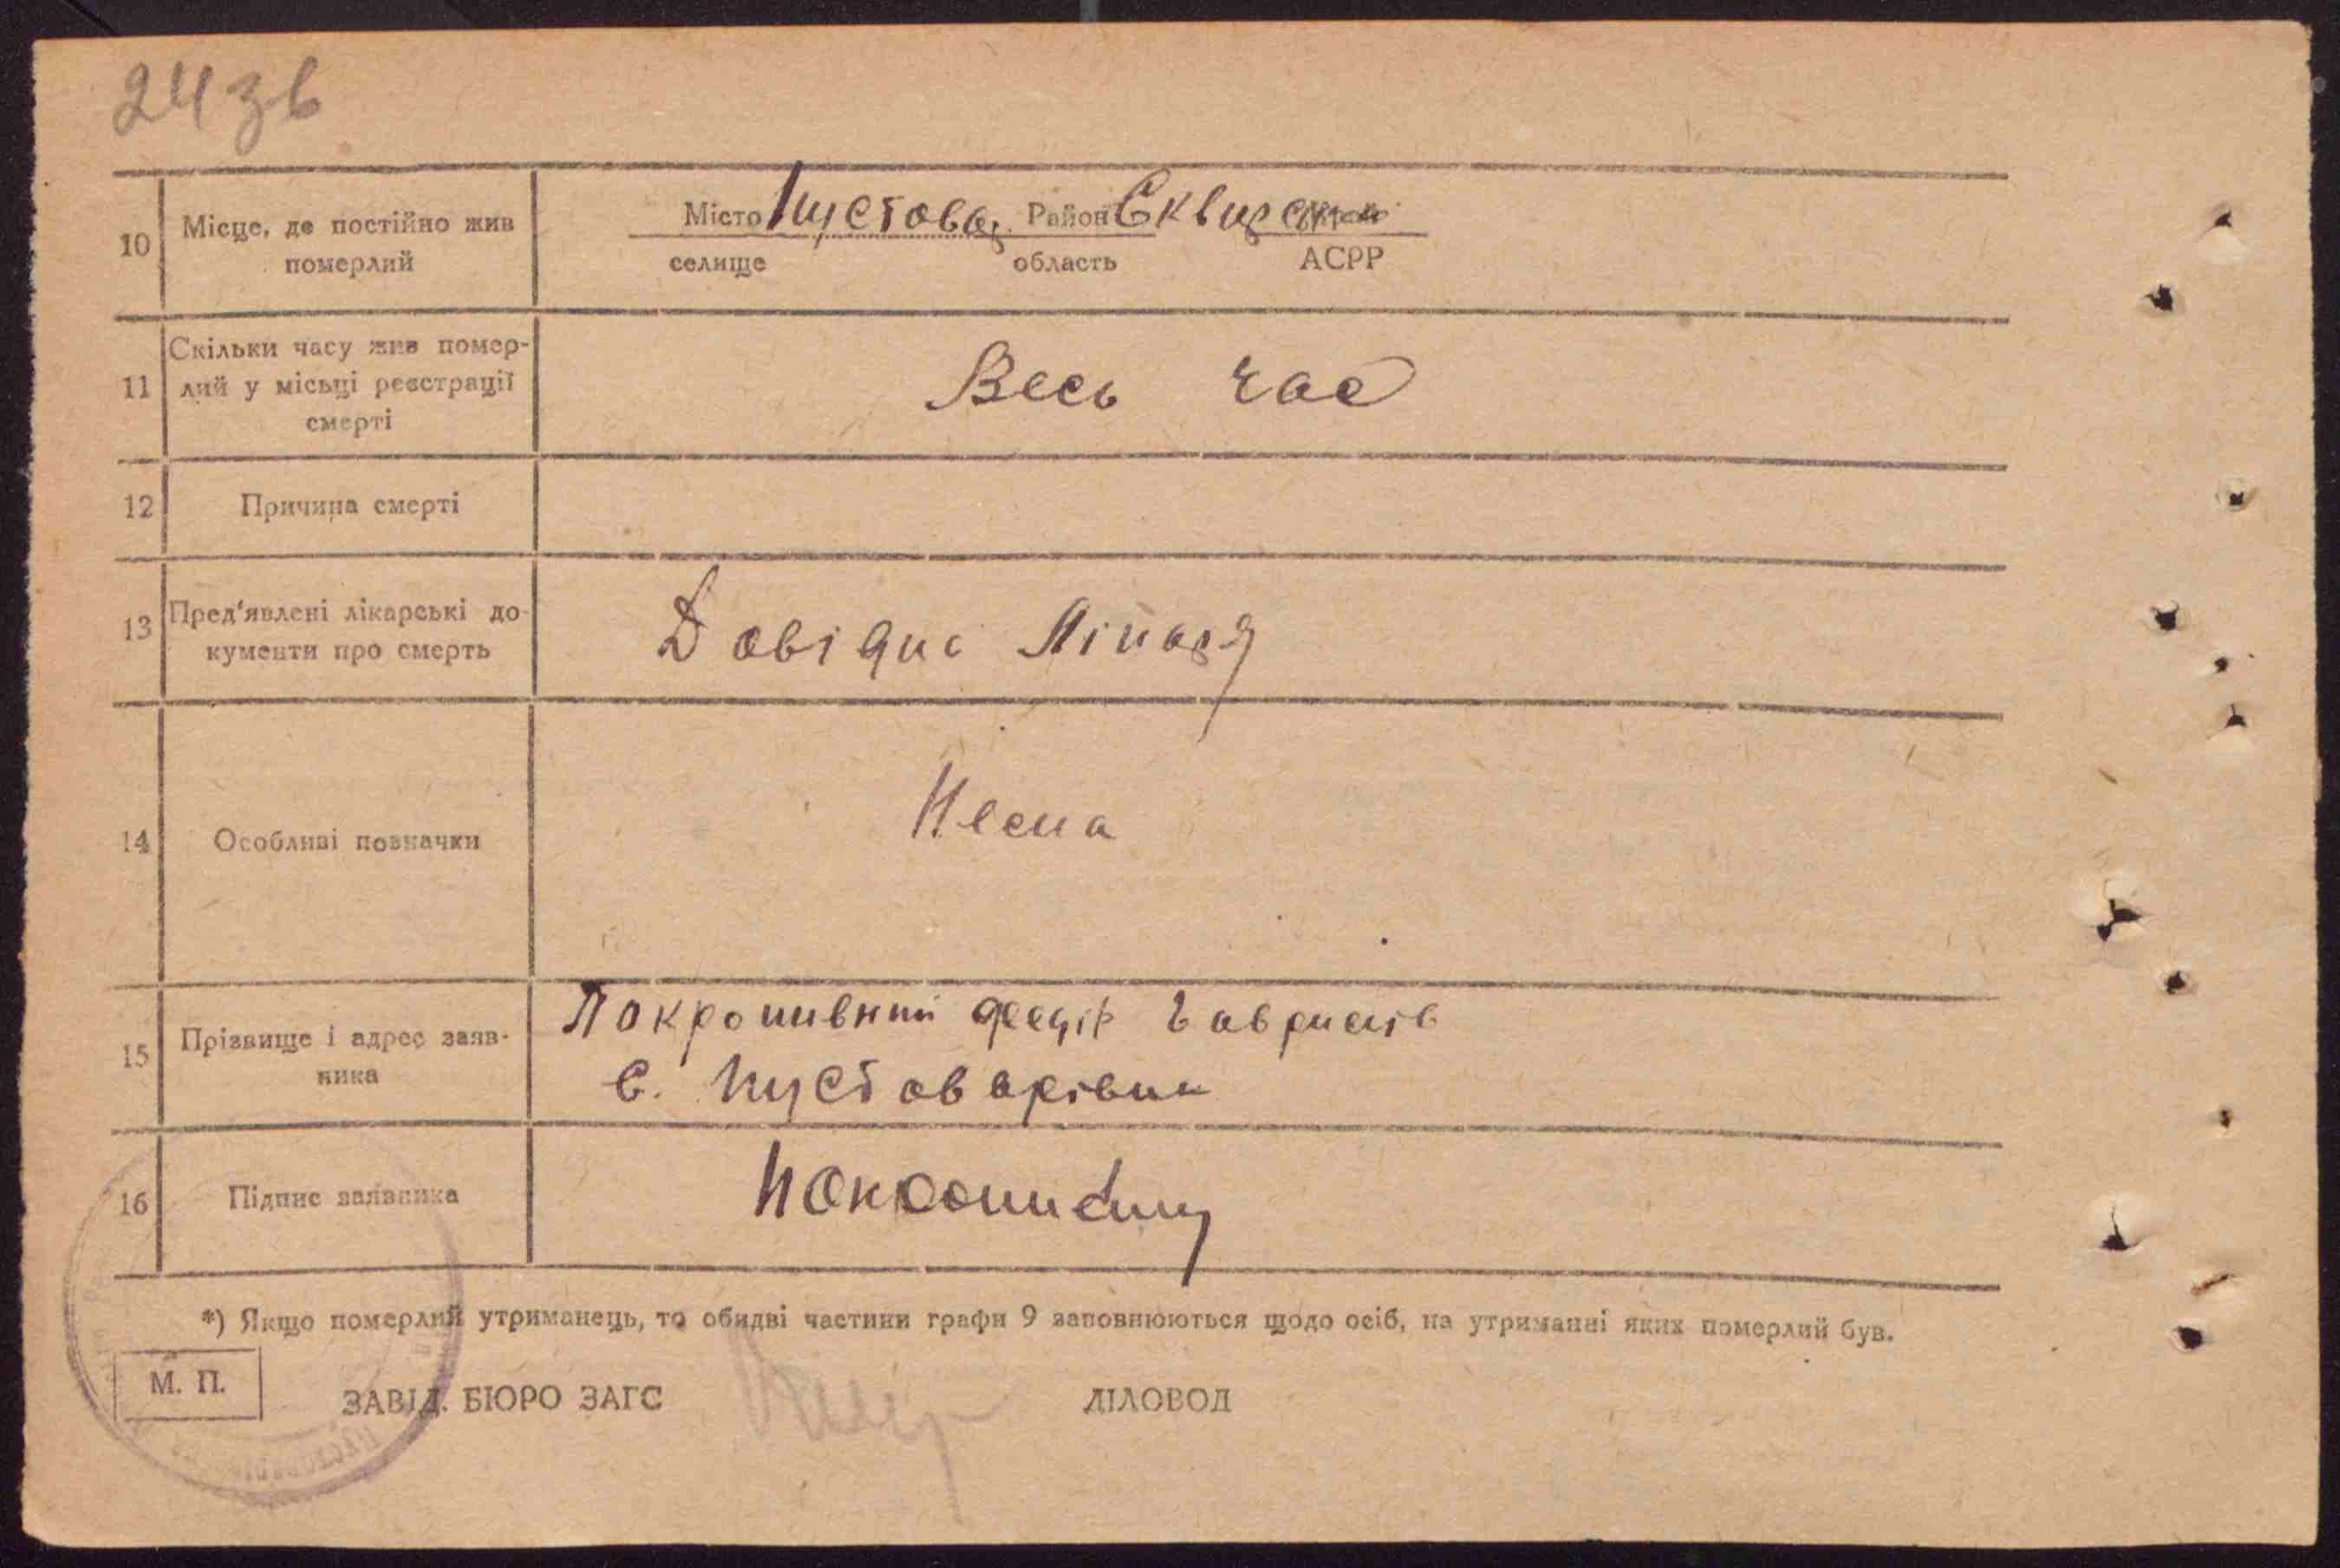 24 зв
10 Місце, де постійно жив померлий
Місто Пустовар. Район Сквирський
селище область АСРР
11 Скільки часу жив помер-
лий у місьці реєстрації
смерті
Весь час
12 Причина смерті
13 Пред'явлені лікарські до-
кументи про смерть
Довідка Лікаря
14 Особливі позначки
Нема
15 Прізвище і адрес заяв-
ника
Покропивний Федір Гаврилів
с. Пустоварівка
16 Підпис заявника
Покропивний
*) Якщо померлий утриманець, то обидві частини графи 9 заповнюються щодо осіб, на утриманні яких померлий був.
М. П.
ЗАВІД. БЮРО ЗАГС ДІЛОВОД